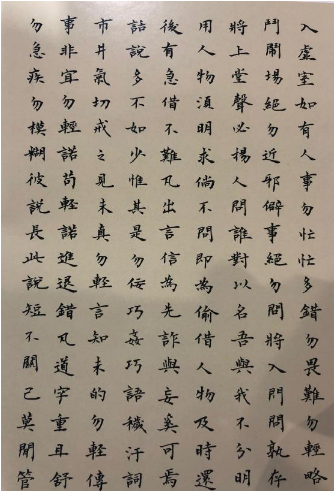 入虛室如有人事勿忙忙多錯勿畏難勿輕略
鬥鬧場絕勿近邪僻事絕勿問將入門問孰存
將上堂聲必揚人問誰對以名吾與我不分明
用人物湏明求倘不問即為偷借人物及時還
後有急借不難凡出言信為先詐與妄奚可焉
話說多不如少惟其是勿佞巧姦巧語穢汙詞
市井氣切戒之見未真勿輕言知未的勿輕傳
事非宜勿輕諾苟輕諾進退錯凡道字重且舒
勿急疾勿模糊彼說長此說短不關己莫閒管